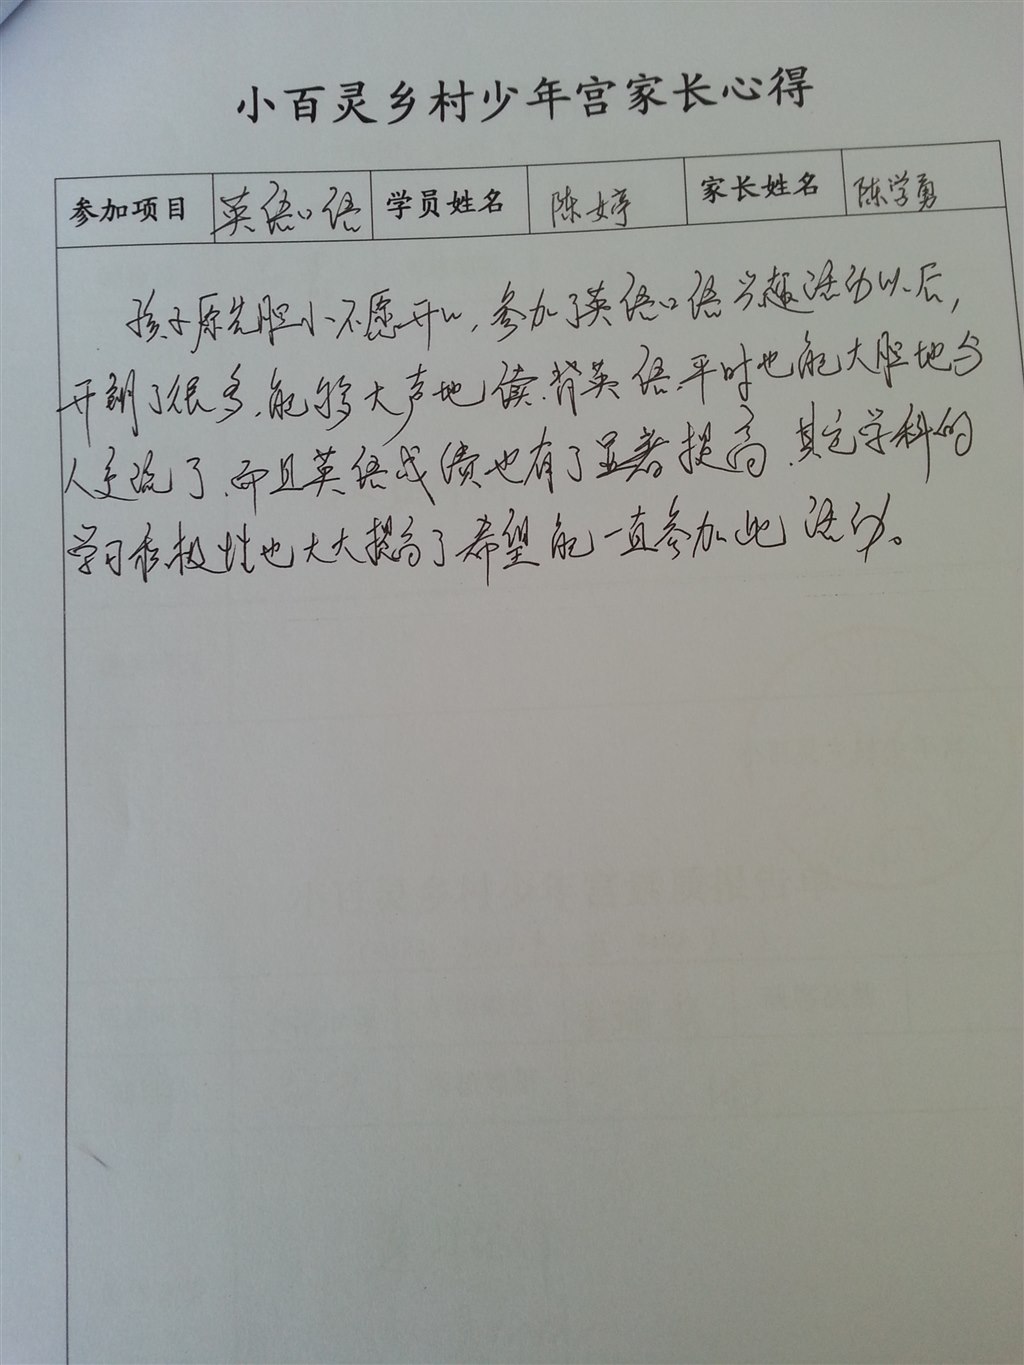 小百灵乡村少年宫家长心得
参加项目 英语口语 学员姓名 陈婷 家长姓名 陈学勇
孩子原先胆小不愿开口,参加了英语口语兴趣活动以后,
开朗了很多,能够大声地读、背英语,平时也能大胆地与
人交流了,而且英语成绩也有了显著提高,其它学科的
学习积极性也大大提高了希望能一直参加此活动。